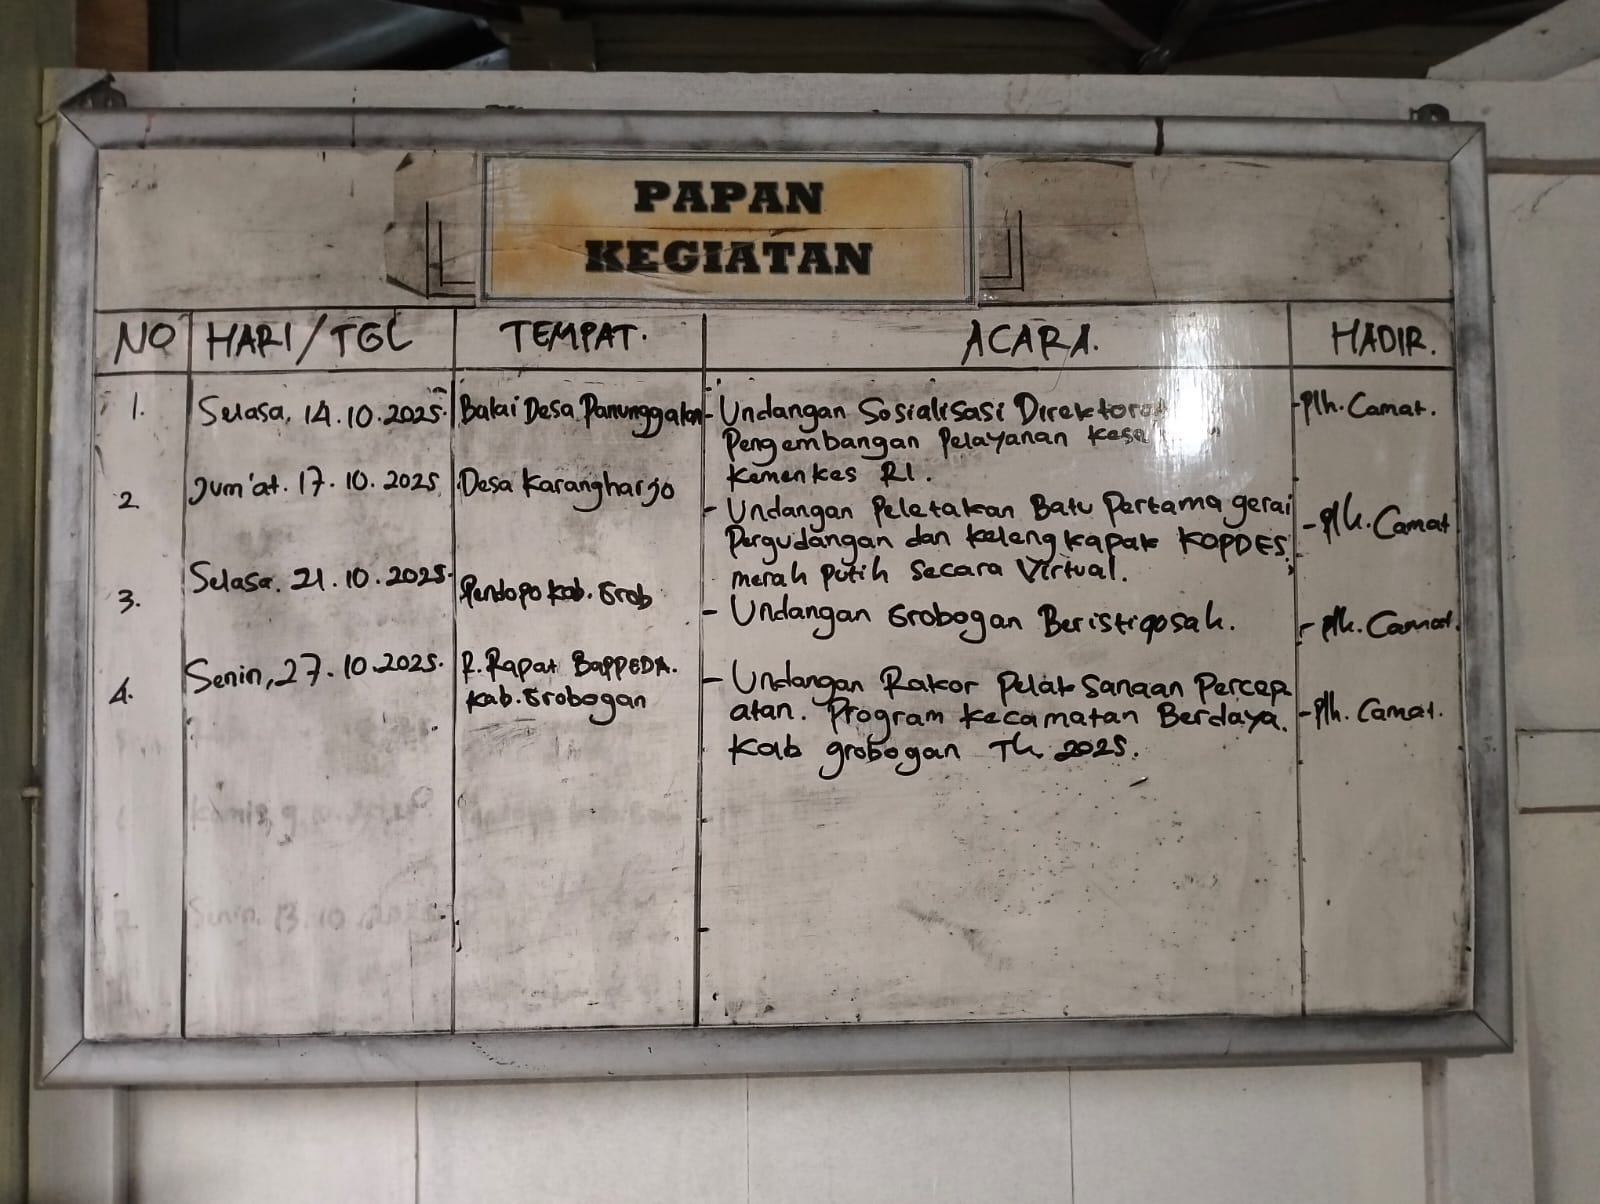 PAPAN
KEGIATAN
NO HARI/TGL TEMPAT. ACARA. HADIR.
1. Selasa, 14.10.2025. Balai Desa Panunggalan - Undangan Sosialisasi Direktorat - Plh. Camat.
Pengembangan Pelayanan
Kemenkes RI.
2 Jum'at. 17.10.2025 Desa Karangharjo
- Undangan Peletakan Batu Pertama gerai - Plh. Camat
Pergudangan dan kelengkapak KOPDES
merah putih secara Virtual.
3. Selasa. 21.10.2025. Pendopo Kab. Grob
- Undangan Grobogan - Plh. Camat.
4. Senin, 27.10.2025. R. Rapat BAPPEDA.
Kab. Grobogan
- Undangan Rakor Pelaksanaan Percep
atan. Program Kecamatan Berdaya. - Plh. Camat.
Kab grobogan Th 2025.
Senin, 13.10